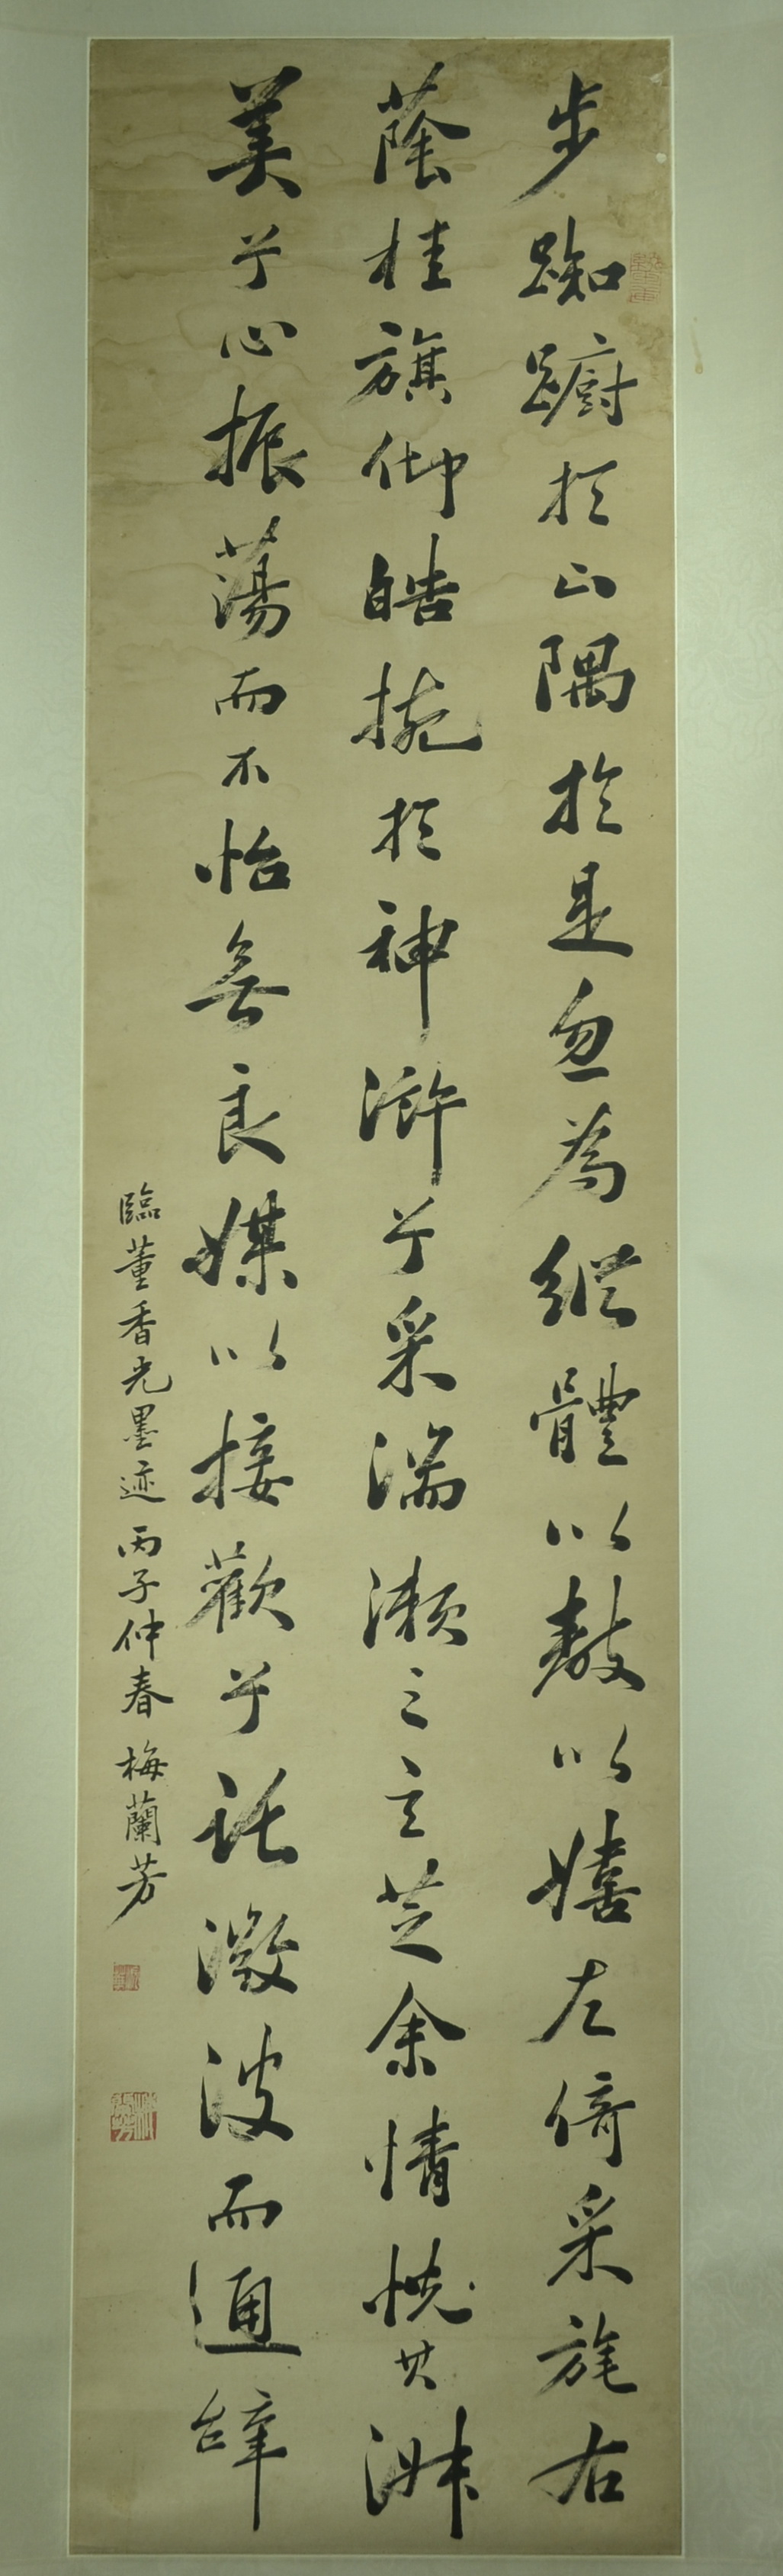 步踟躕於山隅於是忽為縱體以敖以嬉左倚采旄右
蔭桂旗仰皓捥於神滸兮采湍瀨之玄芝余情恱其淑
美兮心振蕩而不怡無良媒以接歡兮託溦波而通辝
臨董香光墨迹丙子仲春梅蘭芳